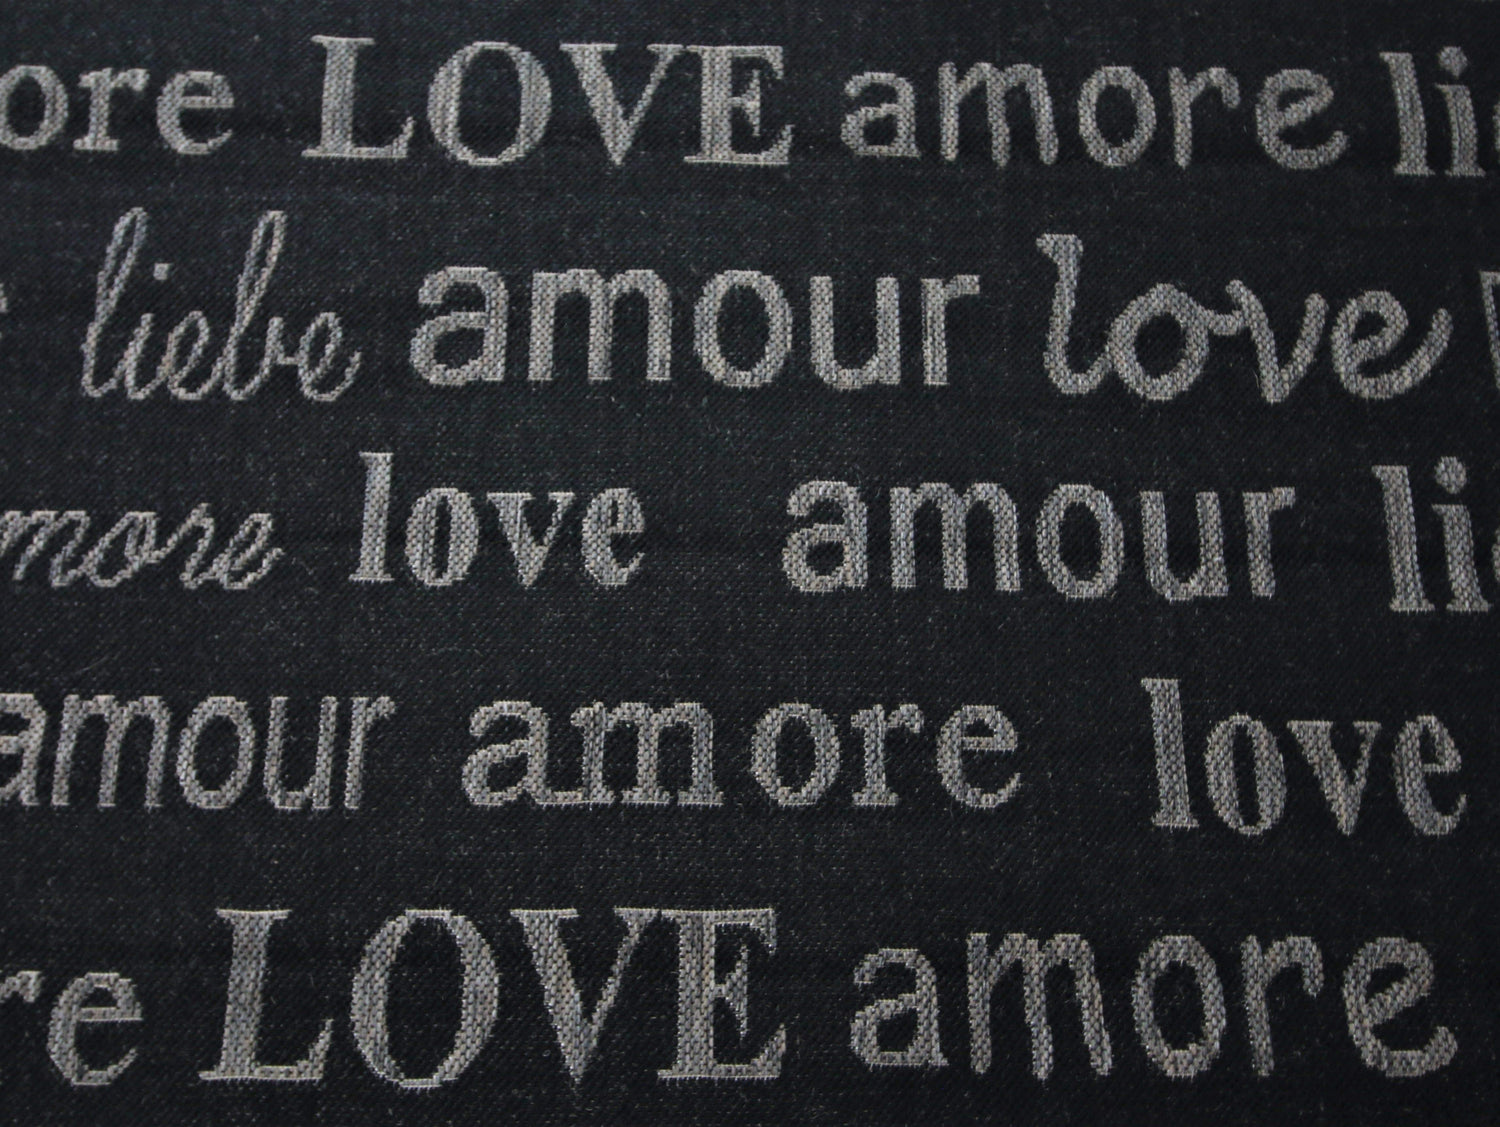 ore LOVE amore lie
liebe amour love
more love amour lie
amour amore love
re LOVE amore